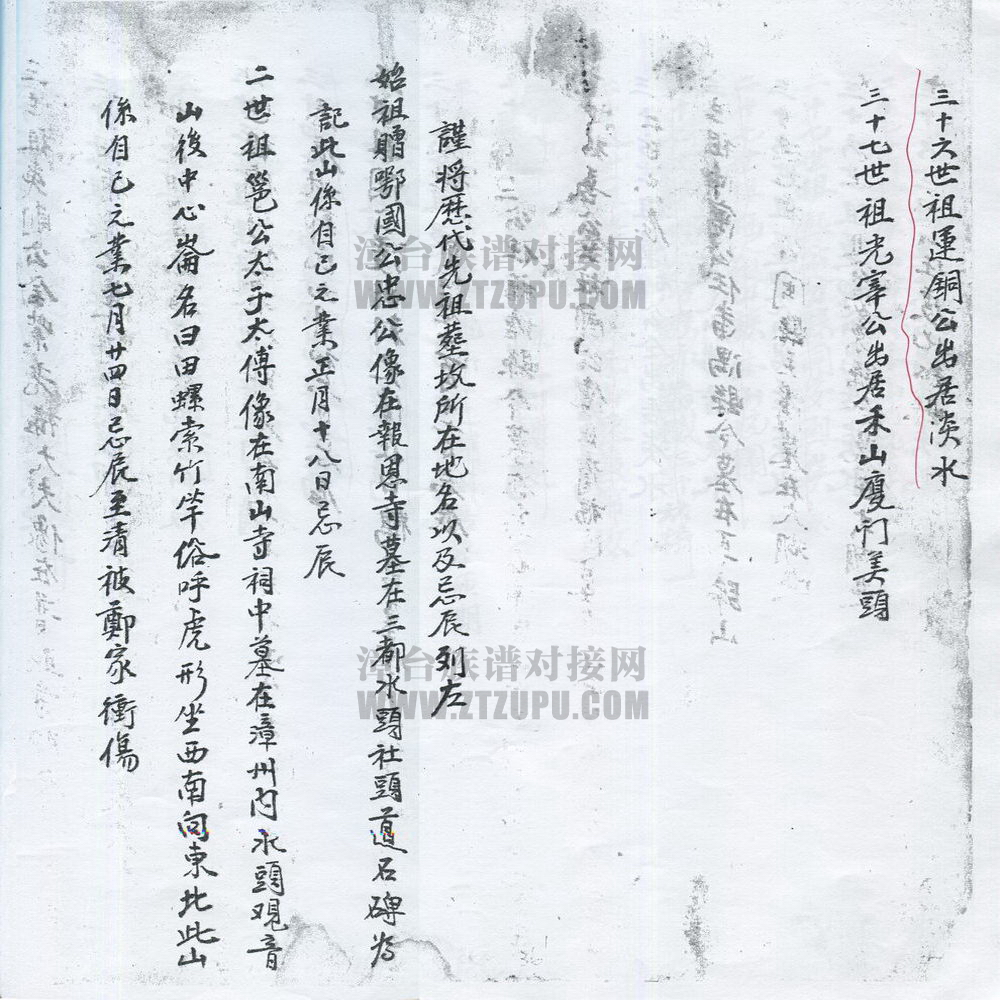 三十六世祖運銅公出居淡水
三十七世祖光宰公出居禾山廈門美頭
謹將歷代先祖塟坟所在地名以及忌辰列左
始祖贈鄂國公忠公像在報恩寺墓在三都水頭社頭道石碑為
記此山係自己元業正月十八日忌辰
二世祖邕公太子太傅像在南山寺祠中墓在漳州內水頭观音
山後中心崙名曰田螺索竹竿俗呼虎形坐西南向東北此山
係自己元業七月廿四日忌辰至清被鄭家衝傷
漳台族谱对接网
WWW.ZTZUPU.COM
漳台族谱对接网
WWW.ZTZUPU.COM